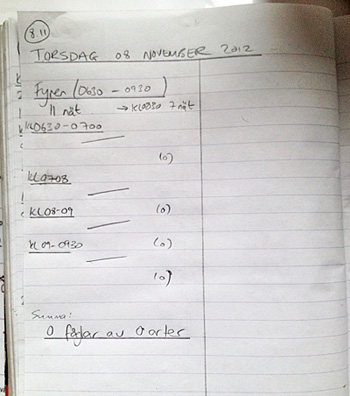 8.11
TORSDAG 08 NOVEMBER 2012
Fyren (0630 - 0930)
11 nät → KL0830 7 nät
KL0630-0700
(0)
KL0708
KL08-09 (0)
KL09-0930 (0)
(0)
Summa:
0 fåglar av 0 arter